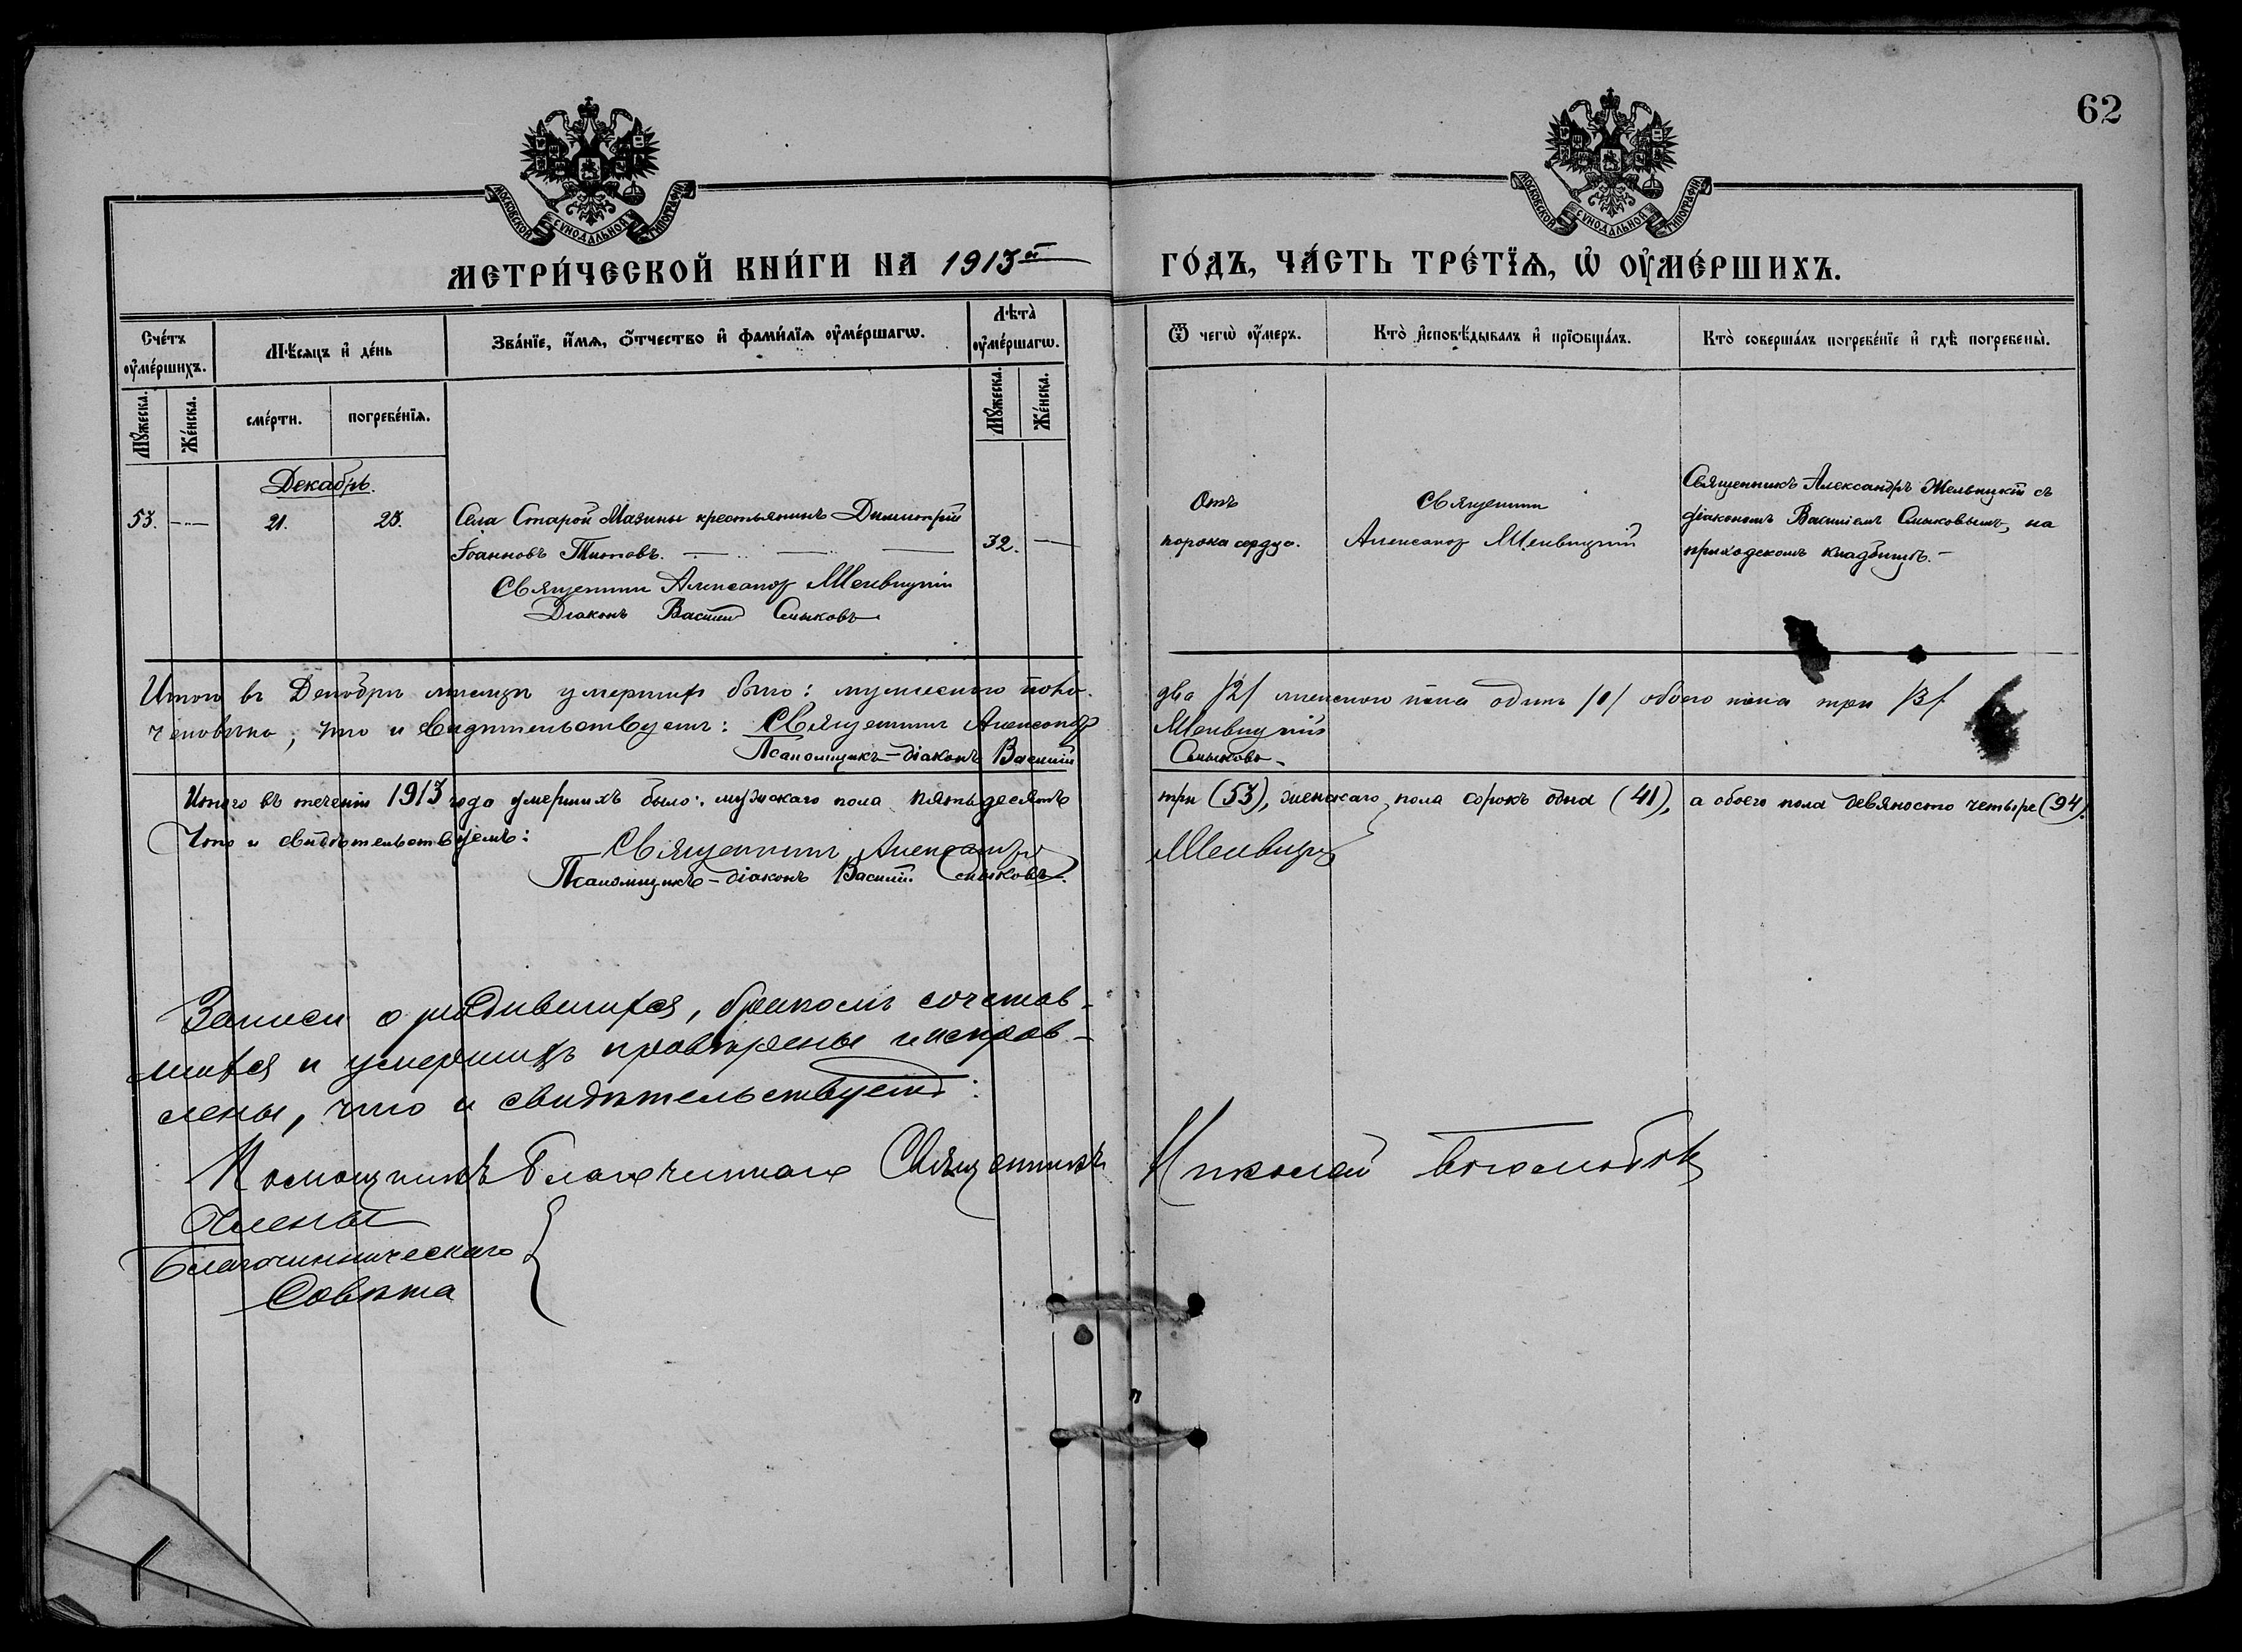 62
МОСКОВСКОЙ СѴНОДАЛЬНОЙ ТИПОГРАФІИ
МОСКОВСКОЙ СѴНОДАЛЬНОЙ ТИПОГРАФІИ
МЕТРИ́ЧЕСКОЙ КНИ́ГИ НА 1913й ГО́ДЪ, ЧА́СТЬ ТРЕ́ТЇѦ, Ѡ҆ ОУ҆МЕ́РШИХЪ.
Сче́тъ оу҆ме́ршихъ.
Мѣ́сяцъ и҆ де́нь
Зва́нїе, и҆́мѧ, ѻ҆́тчество и҆ фами́лїѧ оу҆ме́ршагѡ.
Лѣта̀ оу҆ме́ршагѡ.
Ѿ чегѡ̀ оу҆́меръ.
Кто̀ и҆сповѣ́дывалъ и҆ прїѡбща́лъ.
Кто̀ соверша́лъ погребе́нїе и҆ гдѣ̀ погребены̀.
Мꙋ́жеска.
Же́нска.
сме́рти.
погребе́нїѧ.
Мꙋ́жеска.
Же́нска.
Декабрь.
53. — 21. 23. Села Старой Мазины крестьянинъ Димитрій
Іоанновъ Титовъ. 32. —
Священник Александр Мельницкій
Діаконъ Василій Смыковъ
Отъ
порока сердца.
Священник
Александр Мельницкий
Священникъ Александръ Мельницкій съ
діакономъ Василіемъ Смыковымъ, на
приходскомъ кладбищѣ. –
Итого въ Декабрѣ мѣсяцѣ умерших было: мужескаго пола два /2/ женскаго пола один /1/ обоего пола три /3/
человѣка, что и свидѣтельствуем: Священникъ Александр Мельницкій
Псаломщикъ-діаконъ Василій Смыковъ
Итого въ теченіи 1913 года умершихъ было: мужскаго пола пятьдесятъ три (53), женскаго пола сорокъ одна (41), а обоего пола девяносто четыре (94).
Что и свидѣтельствуемъ:
Священникъ Александръ Мельницк
Псаломщикъ-діаконъ Василій Смыковъ.
Записи о родившихся, бракомъ сочетав-
шихся и умершихъ провѣрены и исправ-
лены, что и свидѣтельствуетъ:
Помощникъ Благочиннаго Священникъ Николай Боголюбов
Члены
Благочинническаго
Совѣта